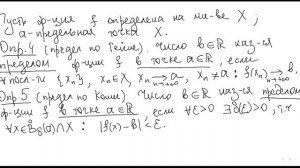 Пусть ф-ция f определена на мн-ве X;
a-предельная точка X.
Опр.4 (предел по Гейне). Число b∈ℝ наз-ся
пределом ф-ции f в точке a∈ℝ, если
∀ посл-ти {xₙ}, xₙ∈X, xₙ →ₙ→∞ a, xₙ≠a : f(xₙ) →ₙ→∞ b.
Опр.5 (предел по Коши). Число b∈ℝ наз-ся пределом
ф-ции f в точке a∈ℝ, если ∀ε>0 ∃δ(ε)>0, т.ч.
∀x∈B̊δ(a)∩X : |f(x)-b|<ε.